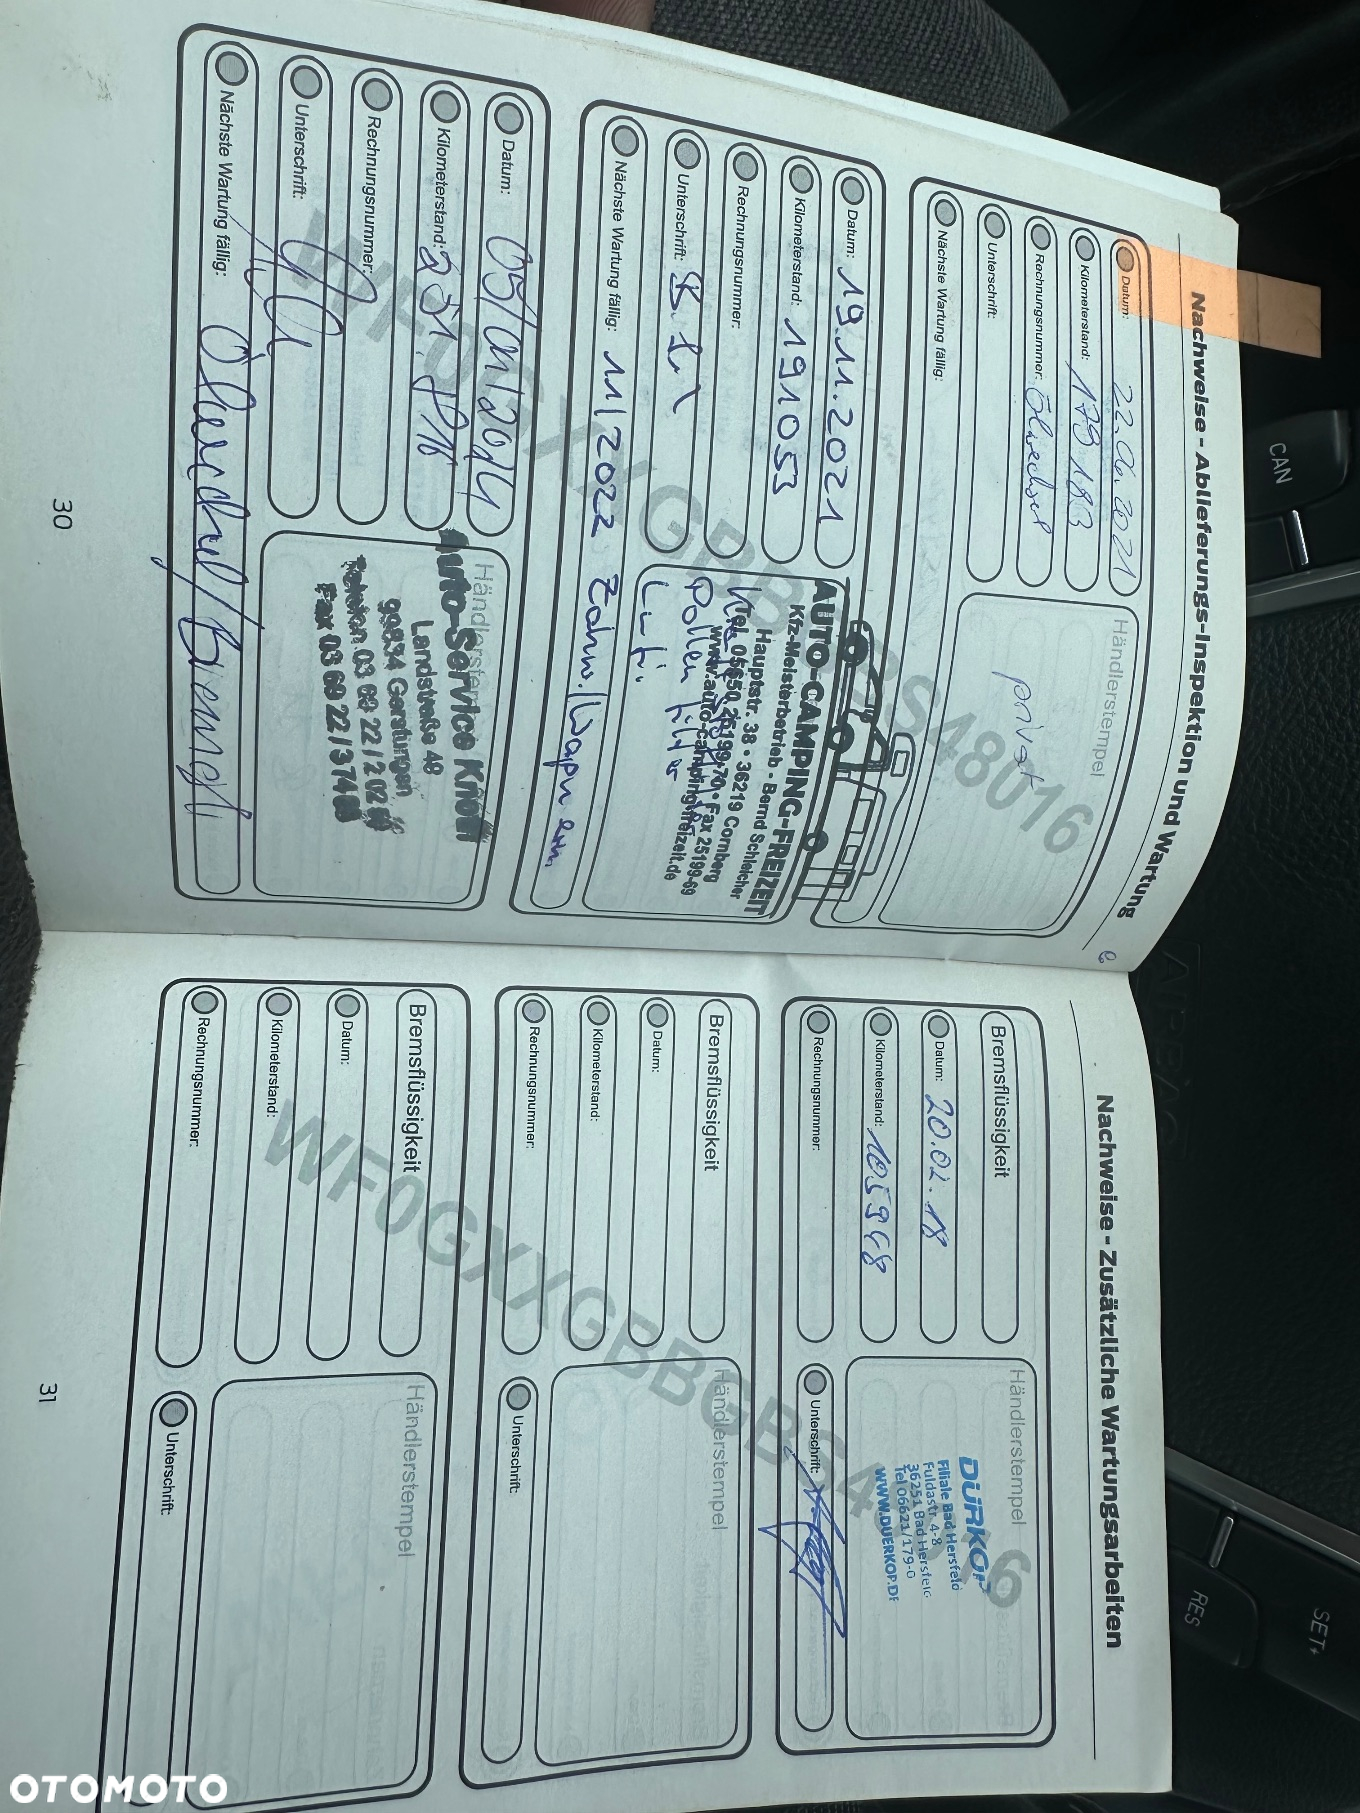 Nachweise - Ablieferungs-Inspektion und Wartung
Datum: 22.06.2021
Kilometerstand: 179 183
Rechnungsnummer: Ölwechsel
Unterschrift:
Nächste Wartung fällig:
Händlerstempel
privat
Datum: 19.11.2021
Kilometerstand: 191053
Rechnungsnummer:
Unterschrift:
Nächste Wartung fällig: 11/2022 Zahnr./
AUTO-CAMPING-FREIZEIT
Kfz-Meisterbetrieb - Bernd Schleicher
Hauptstr. 38 • 36219 Cornberg
Tel. 05650 25199-70 • Fax 25199-69
www.auto-camping-freizeit.de
Pollenfilter
Luft.
Datum:
Kilometerstand:
Rechnungsnummer:
Unterschrift:
Nächste Wartung fällig:
Händlerstempel
Auto-Service Knoth
Landstraße 49
99834 Gerstungen
Telefon 03 69 22 / 2 02
Fax 03 69 22 / 3 74
WF0GXXGBBGBS48016
30
Nachweise - Zusätzliche Wartungsarbeiten
Bremsflüssigkeit
Datum: 20.02.18
Kilometerstand: 105968
Rechnungsnummer:
Händlerstempel
DÜRKOP
Filiale Bad Hersfeld
Fuldastr. 4-8
36251 Bad Hersfeld
Tel 06621/179-0
WWW.DUERKOP.DE
Unterschrift:
Bremsflüssigkeit
Datum:
Kilometerstand:
Rechnungsnummer:
Händlerstempel
Unterschrift:
Bremsflüssigkeit
Datum:
Kilometerstand:
Rechnungsnummer:
Händlerstempel
Unterschrift:
WF0GXXGBBGBS48016
31
CAN
AIRBAG
RES
SET+
OTOMOTO